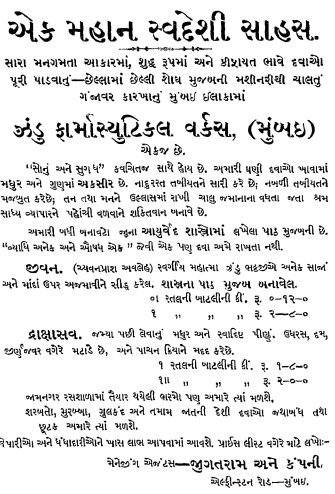 એક મહાન સ્વદેશી સાહસ.
સારા મનગમતા આકારમાં, શુદ્ધ રૂપમાં અને કીફાયત ભાવે દવાઓ
પૂરી પાડવાનું—છેલ્લામાં છેલ્લી શોધ મુજબની મશીનરીથી ચાલતું
ગંજાવર કારખાનું મુંબઇ ઇલાકામાં
ઝંડુ ફાર્માસ્યુટિકલ વર્કસ, (મુંબઇ)
એકજ છે.
“સોનું અને સુગંધ” કવચિતજ સાથે હોય છે. અમારી ઘણી દવાઓ ખાવામાં
મધુર અને ગુણમાં અકસીર છે. નાદુરસ્ત તબીયતને સારી કરે છે; નબળી તબીયતને
મજબુત કરે છે; તન તથા મનને ઉલ્લાસમાં રાખી ચાલુ જમાનાના વધતા જતા શ્રમ
સાધ્ય વ્યાપારને પહોંચી વળવાને શક્તિવાન બનાવે છે.
અમારી બધી બનાવટો જુના આયુર્વેદ શાસ્ત્રોમાં લખેલા પાઠ મુજબની છે.
“વ્યાધિ અનેક અને ઔષધ એક” જેવી એક પણ દવા અમે રાખતા નથી.
જીવન. (ચ્યવનપ્રાશ અવલેહ) સ્વર્ગીય મહાત્મા ઝંડુ ભટ્ટજીએ અનેક સાજાં
અને માંદાં ઉપર અજમાવીને સીદ્ધ કરેલ. શાસ્ત્રના પાઠ મુજબ બનાવેલ.
૦ા રતલની બાટલીની કીં. રૂ. ૦-૧૨-૦
૧ ,, ,, ,, રૂ. ૨-૦-૦
દ્રાક્ષાસવ. જમ્યા પછી લેવાનું મધુર અને સ્વાદિષ્ટ પીણું. ઉધરસ, દમ,
જીર્ણજ્વર વગેરે મટાડે છે, અને પાચન ક્રિયાને મદદ કરે છે.
૧ રતલની બાટલીની કીં. રૂ. ૧-૮-૦
૧ાા ,, ,, ,, રૂ. ૨-૦-૦
જામનગર રસશાળામાં તૈયાર થયેલી ભસ્મો પણ અમારે ત્યાં મળશે.
શરબતો, મુરબ્બા, ગુલકંદ અને તમામ જાતની દેશી દવાઓ જથાબંધ તથા
છૂટક અમારે ત્યાં મળશે.
વેપારીઓ અને ધંધાદારીઓને ખાસ લાભ આપવામાં આવશે. પ્રાઇસ લીસ્ટ વગેરે માટે લખો:—
મેનેજીંગ એજંટસ—જીગતરામ અને કંપની,
એલ્ફીન્સ્ટન રોડ—મુંબઇ.